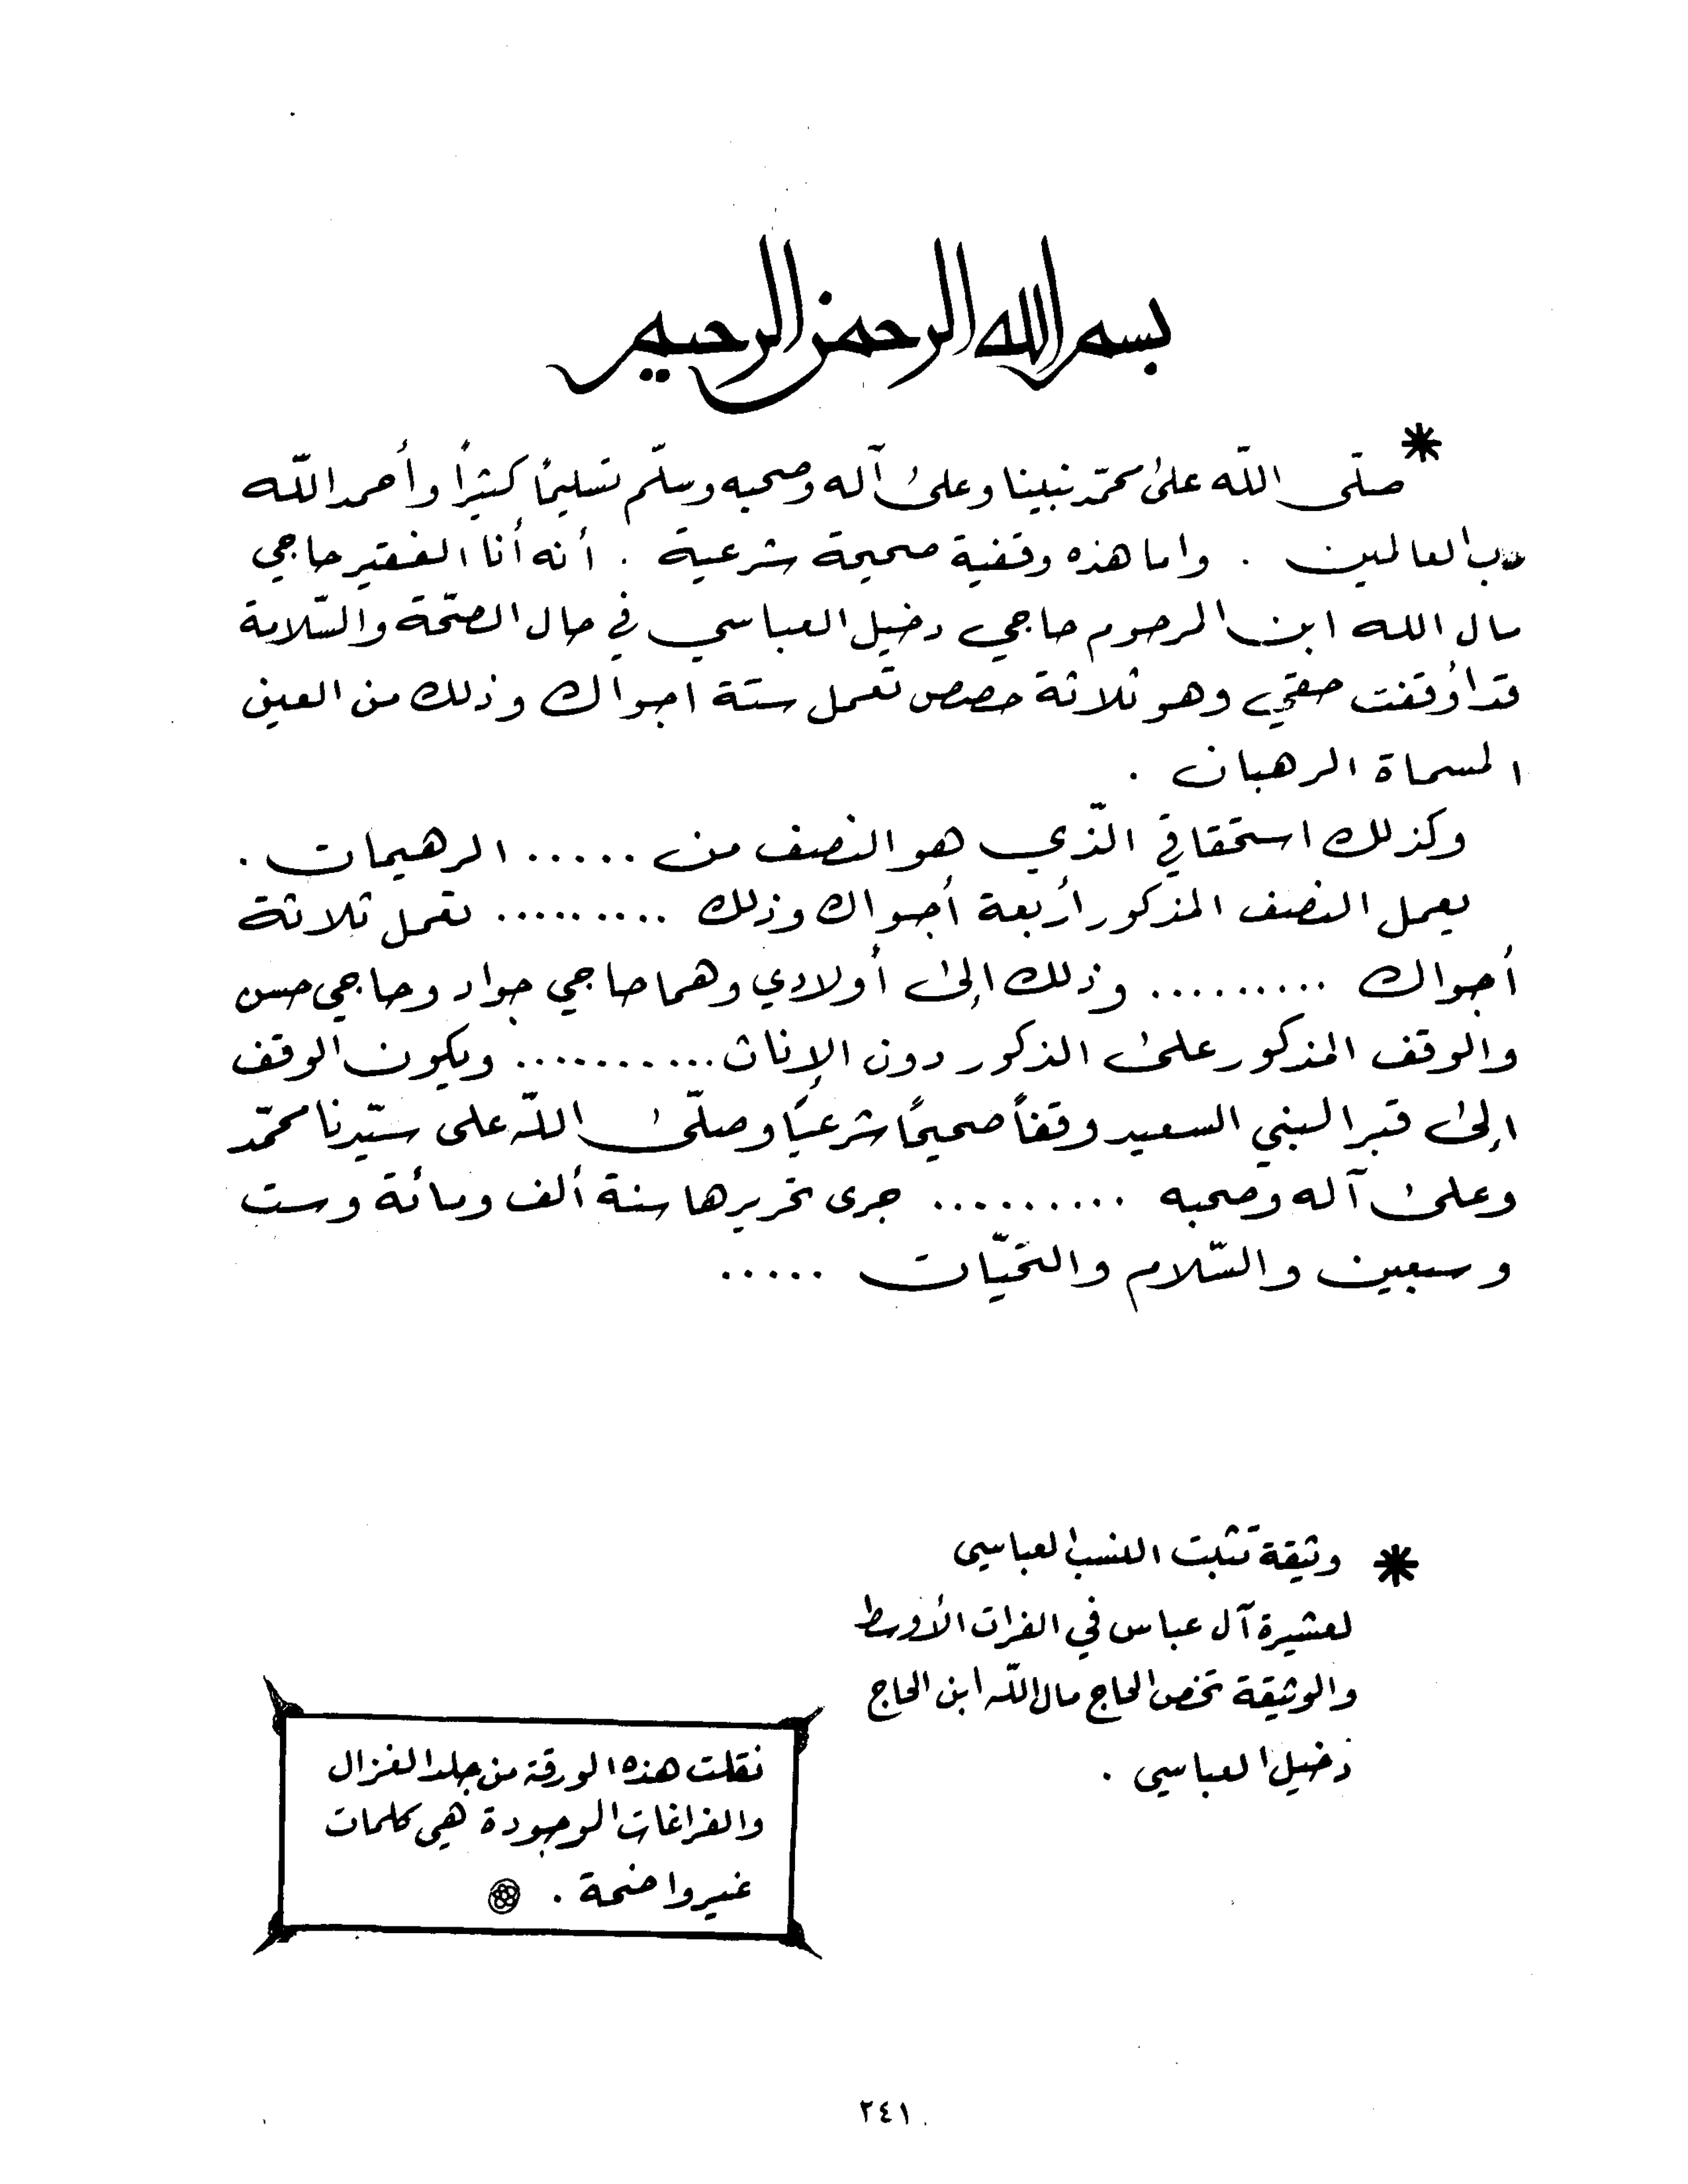 بسم الله الرحمن الرحيم
* صلّى اللّه على محمّد نبينا وعلى آله وصحبه وسلّم تسليمًا كثيرًا وأحمد اللّه
رب العالمين . واما هذه وقفية صحيحة شرعية . أنه أنا الفقير حاجي
مال الله ابن المرحوم حاجي دخيل العباسي في حال الصحّة والسّلامة
قد أوقفت حقي وهو ثلاثة حصص تعمل ستة اجواك وذلك من العين
المسماة الرهبان .
وكذلك استحقاقي الذّي هو النصف من ..... الرهيمات .
يعمل النصف المذكور أربعة أجواك وذلك ......... تعمل ثلاثة
أجواك ......... وذلك إلى أولادي وهما حاجي جواد وحاجي حسن
والوقف المذكور على الذكور دون الإناث .......... ويكون الوقف
إلى قبر النبي السعيد وقفاً صحيحًا شرعيًا وصلّى اللّه على سيّدنا محمّد
وعلى آله وصحبه ......... جرى تحريرها سنة ألف ومائة وست
وسبعين والسّلام والتحيّات .....
* وثيقة تثبت النسب العباسي
لعشيرة آل عباس في الفرات الأوسط
والوثيقة تخص الحاج مال اللّه ابن الحاج
دخيل العباسي .
نقلت هذه الورقة من جلد الغزال
والفراغات الموجودة هي كلمات
غير واضحة .
٢٤١